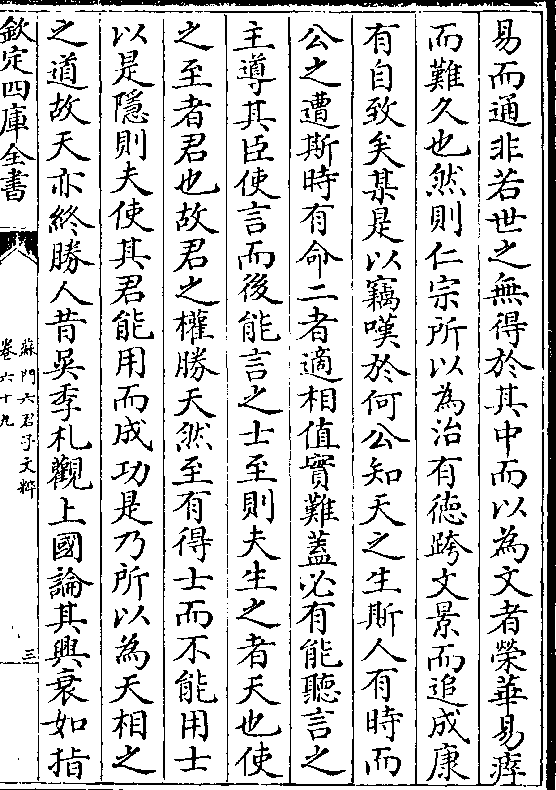 易而通非若世之無得於其中而以為文者榮華易瘁
而難久也然則仁宗所以為治有徳跨文景而追成康
有自致矣某是以竊嘆於何公知天之生斯人有時而
公之遭斯時有命二者適相值實難蓋必有能聽言之
主導其臣使言而後能言之士至則夫生之者天也使
之至者君也故君之權勝天然至有得士而不能用士
以是隱則夫使其君能用而成功是乃所以為天相之
之道故天亦終勝人昔吳季札觀上國論其興衰如指
欽定四庫全書
蘇門六君子文粹
卷六十九
三